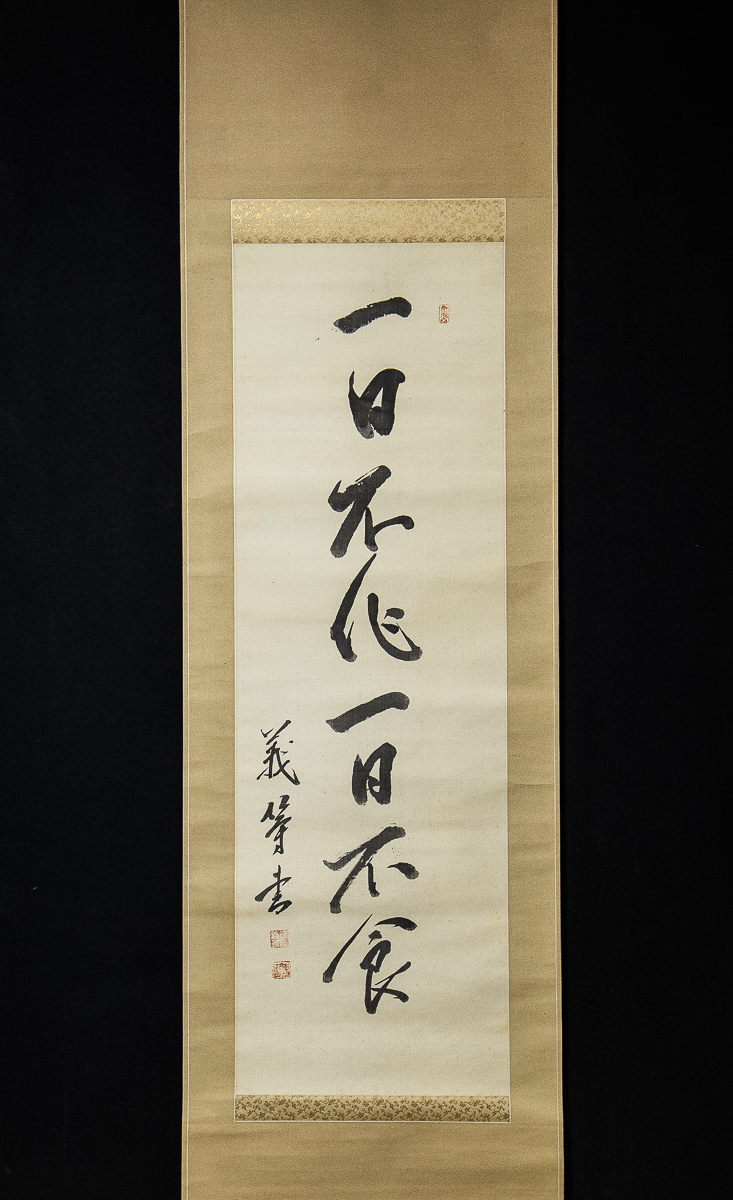 一日不作一日不食
義等書